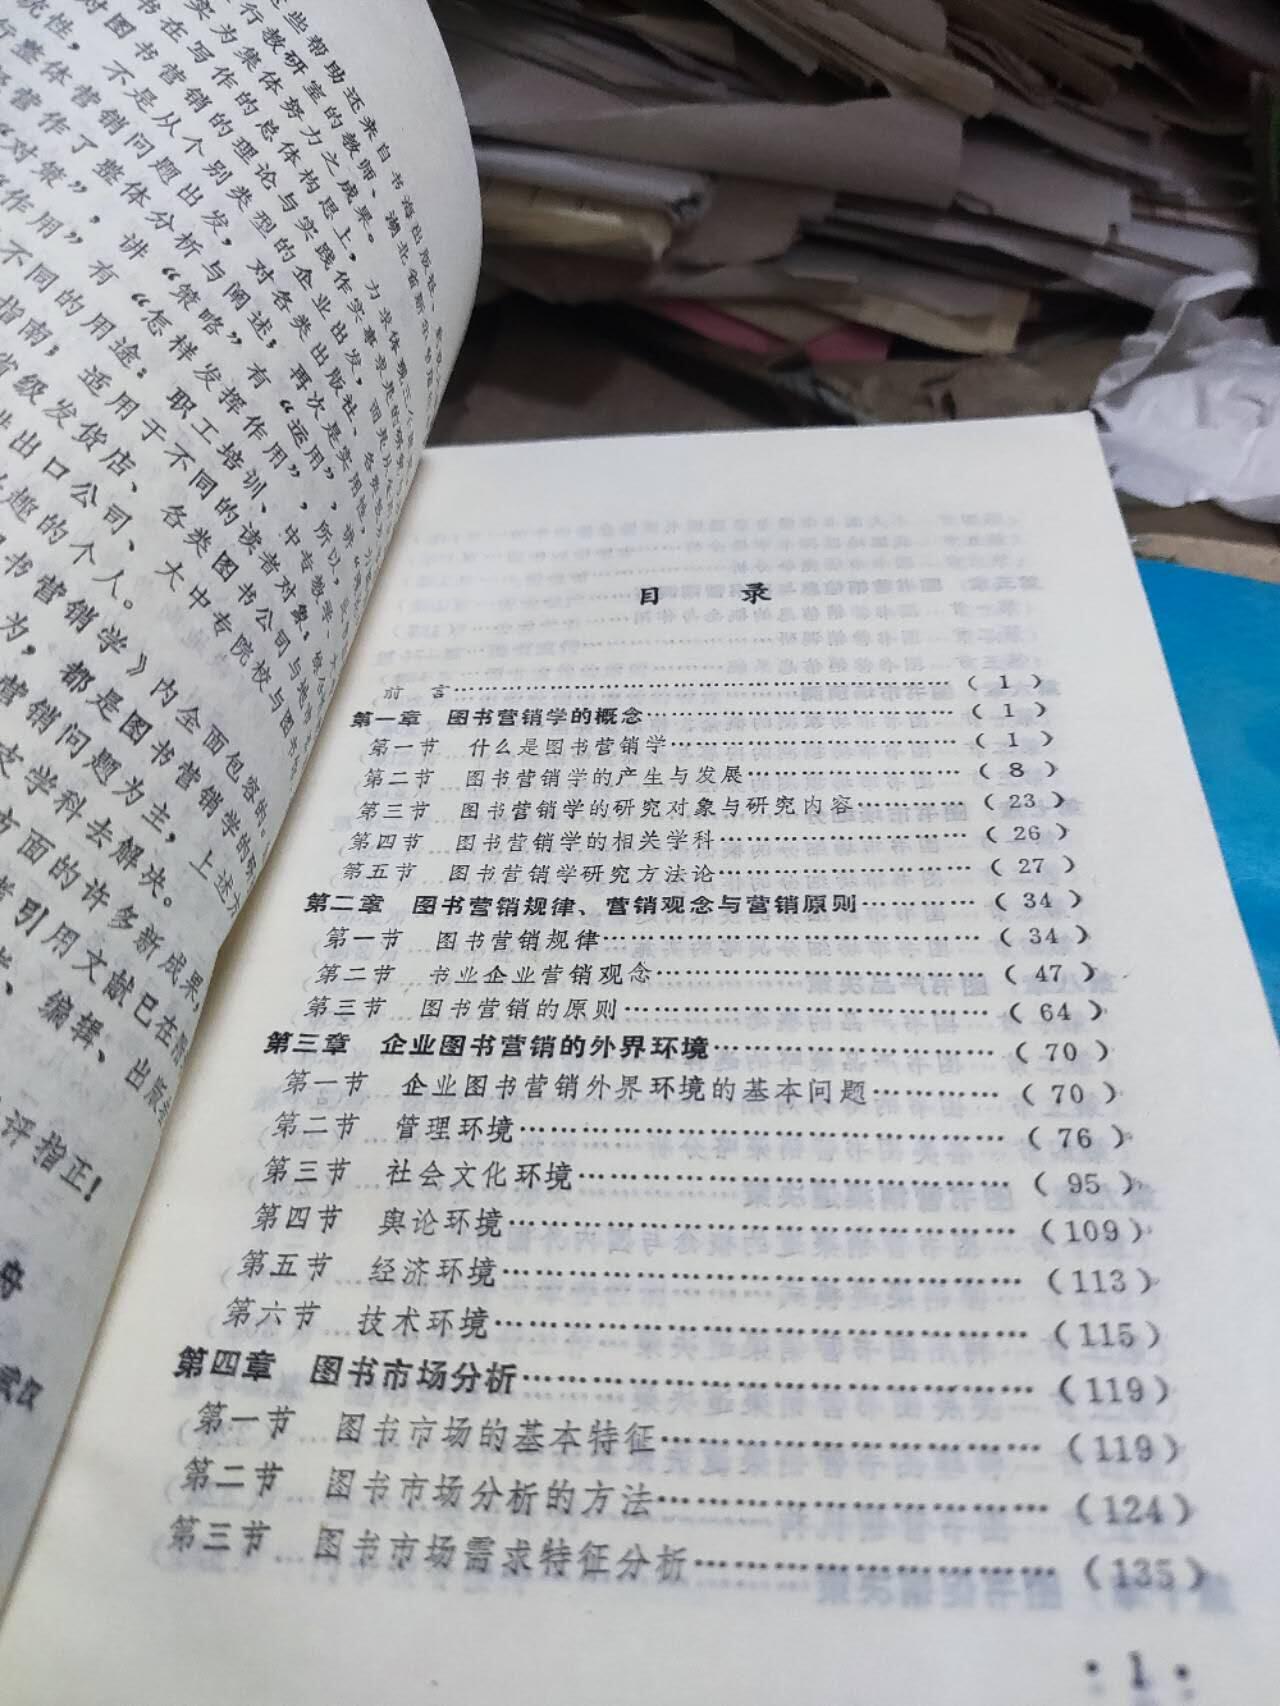 些帮助还来自书海出版社、
行教研室的教师、湖北省新
实为集体努力之成果。
书在写作的总体构思上，力求体现三个
对图书营销的理论与实践作实事求是的研究
统性，不是从个别类型的企业出发，而是从
行整体营销问题出发，对各类出版社、各类
经营作了整体分析与阐述；再次是实用性，
“对策”，讲“策略”有“运用”，讲
“作用”有“怎样发挥作用”，所以，
不同的用途：职工培训、中专教学、大
指南；适用于不同的读者对象：
省级发货店、各类图书公司与地
进出口公司、大中专院校与图书
趣的个人。
书营销学》内全面包容的。
为，都是图书营销学的研
营销问题为主，上述
支学科去解决。
方面的许多新成果，
考引用文献已在
、编辑、出版
评指正！
武汉
目 录
前 言……（1）
第一章 图书营销学的概念……（1）
第一节 什么是图书营销学……（1）
第二节 图书营销学的产生与发展……（8）
第三节 图书营销学的研究对象与研究内容……（23）
第四节 图书营销学的相关学科……（26）
第五节 图书营销学研究方法论……（27）
第二章 图书营销规律、营销观念与营销原则……（34）
第一节 图书营销规律……（34）
第二节 书业企业营销观念……（47）
第三节 图书营销的原则……（64）
第三章 企业图书营销的外界环境……（70）
第一节 企业图书营销外界环境的基本问题……（70）
第二节 管理环境……（76）
第三节 社会文化环境……（95）
第四节 舆论环境……（109）
第五节 经济环境……（113）
第六节 技术环境……（115）
第四章 图书市场分析……（119）
第一节 图书市场的基本特征……（119）
第二节 图书市场分析的方法……（124）
第三节 图书市场需求特征分析……（135）
·1·